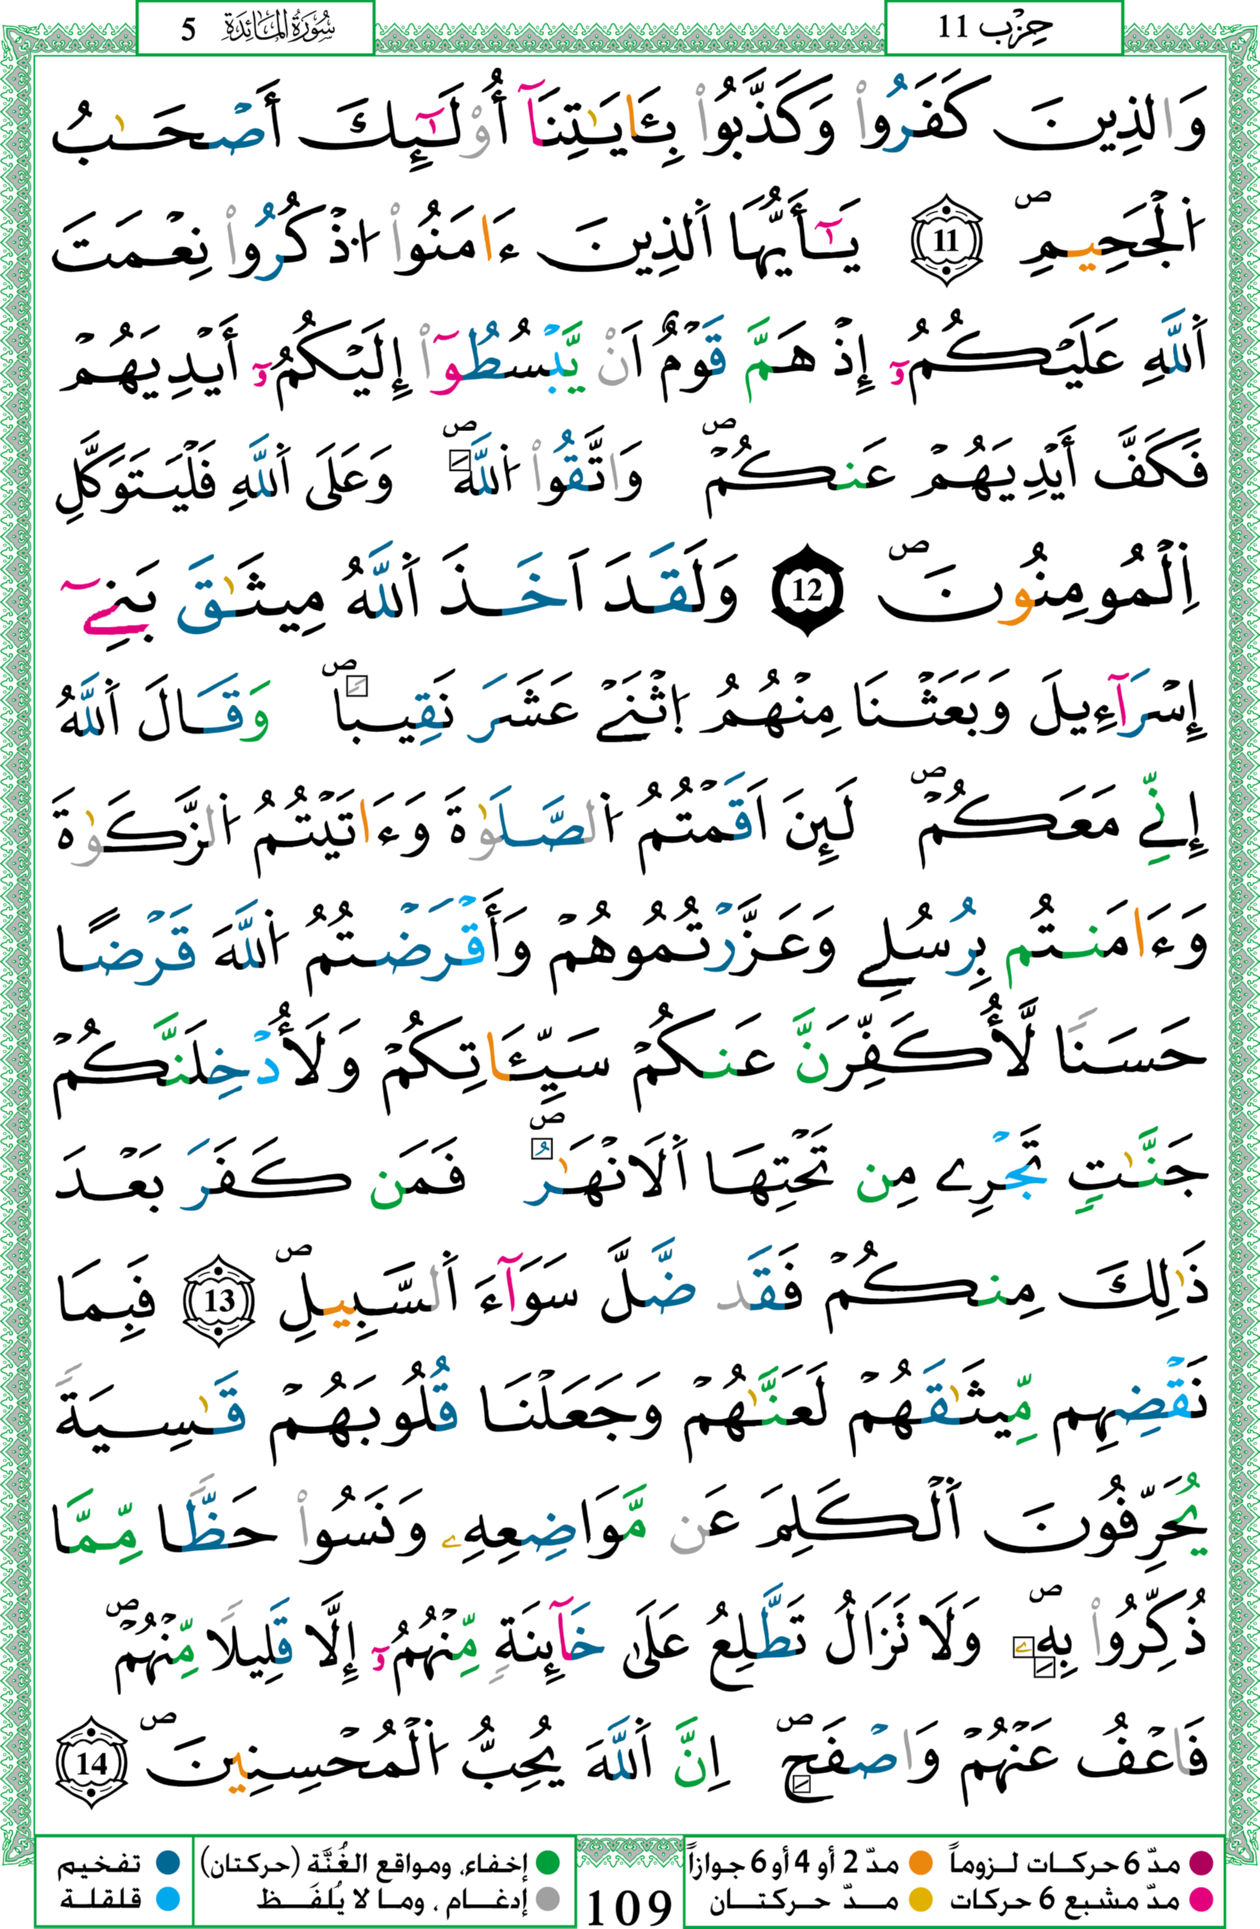 حِزْب 11
سُورَةُ المَائِدَة 5
وَالذِينَ كَفَرُواْ وَكَذَّبُواْ بِـَٔايَٰتِنَآ أُوْلَٰٓئِكَ أَصْحَٰبُ
اُ۬لْجَحِيمِۖ 11 يَٰٓأَيُّهَا اَ۬لذِينَ ءَامَنُواْ اُ۟ذْكُرُواْ نِعْمَتَ
اَ۬للَّهِ عَلَيْكُمُۥٓ إِذْ هَمَّ قَوْمٌ اَنْ يَّبْسُطُوٓاْ إِلَيْكُمُۥٓ أَيْدِيَهُمْ
فَكَفَّ أَيْدِيَهُمْ عَنكُمْۖ وَاتَّقُواْ اُ۬للَّهَۖ وَعَلَى اَ۬للَّهِ فَلْيَتَوَكَّلِ
اِ۬لْمُومِنُونَۖ 12 وَلَقَدَ اَخَذَ اَ۬للَّهُ مِيثَٰقَ بَنِےٓ
إِسْرَآءِيلَ وَبَعَثْنَا مِنْهُمُ اُ۪ثْنَےْ عَشَرَ نَقِيباٗۖ وَقَالَ اَ۬للَّهُ
إِنِّے مَعَكُمْۖ لَئِنَ اَقَمْتُمُ اُ۬لصَّلَوٰةَ وَءَاتَيْتُمُ اُ۬لزَّكَوٰةَ
وَءَامَنتُم بِرُسُلِے وَعَزَّرْتُمُوهُمْ وَأَقْرَضْتُمُ اُ۬للَّهَ قَرْضًا
حَسَنٗا لَّأُكَفِّرَنَّ عَنكُمْ سَيِّـَٔاتِكُمْ وَلَأُدْخِلَنَّكُمْ
جَنَّٰتٖ تَجْرِے مِن تَحْتِهَا اَ۬لَانْهَٰرُۖ فَمَن كَفَرَ بَعْدَ
ذَٰلِكَ مِنكُمْ فَقَد ضَّلَّ سَوَآءَ اَ۬لسَّبِيلِۖ 13 فَبِمَا
نَقْضِهِم مِّيثَٰقَهُمْ لَعَنَّٰهُمْ وَجَعَلْنَا قُلُوبَهُمْ قَٰسِيَةٗ
يُحَرِّفُونَ اَ۬لْكَلِمَ عَن مَّوَاضِعِهِۦ وَنَسُواْ حَظّٗا مِّمَّا
ذُكِّرُواْ بِهِۦۖ وَلَا تَزَالُ تَطَّلِعُ عَلَىٰ خَآئِنَةٖ مِّنْهُمُۥٓ إِلَّا قَلِيلٗا مِّنْهُمْۖ
فَاعْفُ عَنْهُمْ وَاصْفَحِۖ اِنَّ اَ۬للَّهَ يُحِبُّ اُ۬لْمُحْسِنِينَۖ 14
مدّ 6 حركات لـزوماً مدّ 2 أو 4 أو 6 جوازاً
مدّ مشبع 6 حركات مـدّ حركتـان
109
إخفاء، ومواقع الغُنَّة (حركتان) تفخيم
إدغـام ، ومـا لا يُلفَـظ قلقلة